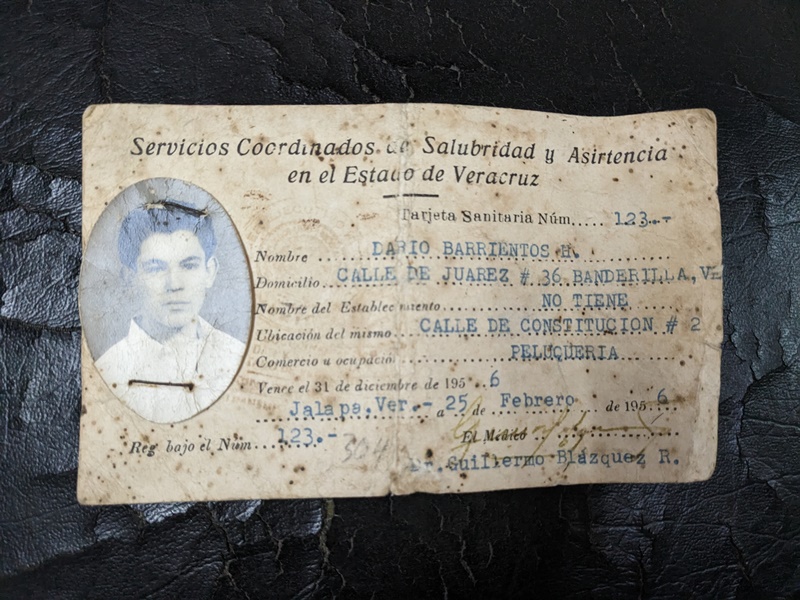 Servicios Coordinados de Salubridad y Asirtencia
en el Estado de Veracruz
Tarjeta Sanitaria Núm..... 123.--
Nombre ...... DARIO BARRIENTOS H.
Domicilio... CALLE DE JUAREZ # 36 BANDERILLA, VE
Nombre del Establecimiento NO TIENE
Ubicación del mismo CALLE DE CONSTITUCION # 2
Comercio u ocupació PELUQUERIA
Vence el 31 de diciembre de 195 6
Jalapa, Ver.- a 25 de Febrero de 195 6
Reg bajo el Núm. 123.- 304
El Médico
Dr. Guillermo Blázquez R.